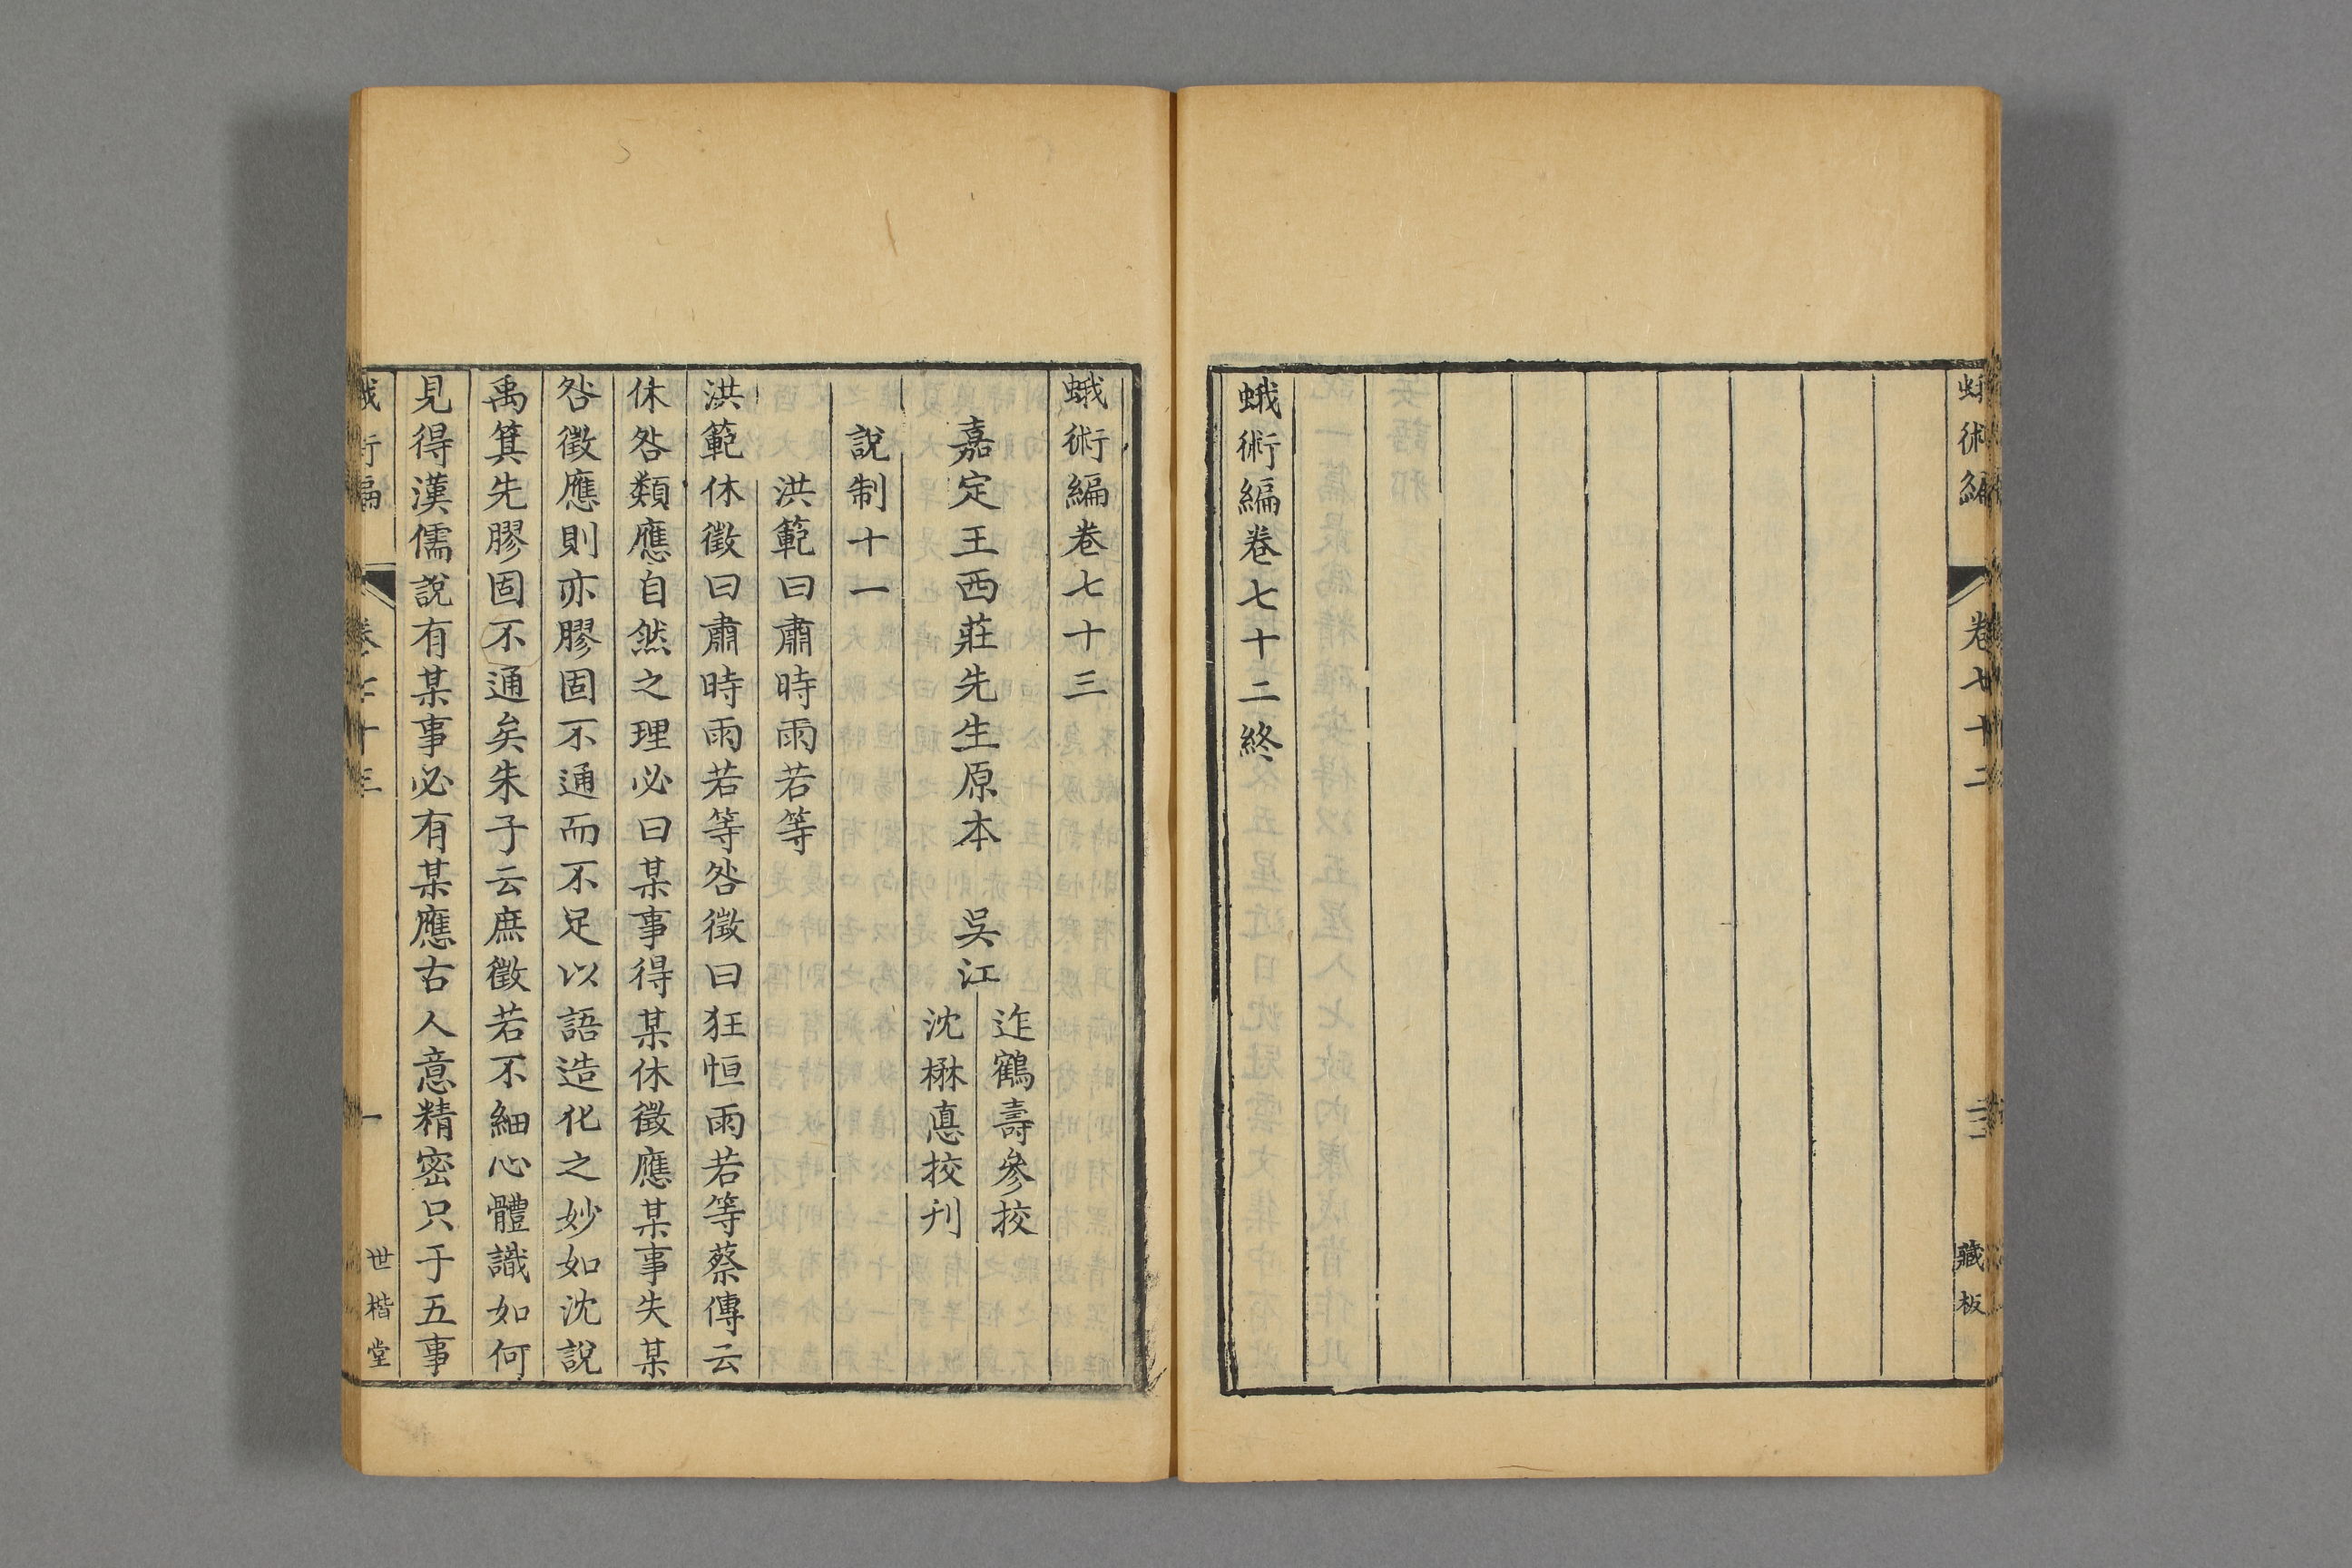 蛾術編
卷七十二
藏板
蛾術編卷七十二終
蛾術編卷七十三
嘉定王西莊先生原本　吳江
迮鶴壽參挍
沈楙悳挍刊
說制十一
洪範曰肅時雨若等
洪範休徵曰肅時雨若等咎徵曰狂恒雨若等蔡傳云
休咎類應自然之理必曰某事得某休徵應某事失某
咎徵應則亦膠固不通而不足以語造化之妙如沈說
禹箕先膠固不通矣朱子云庶徵若不細心體識如何
見得漢儒說有某事必有某應古人意精密只于五事
蛾術編
卷七十三
一
世楷堂